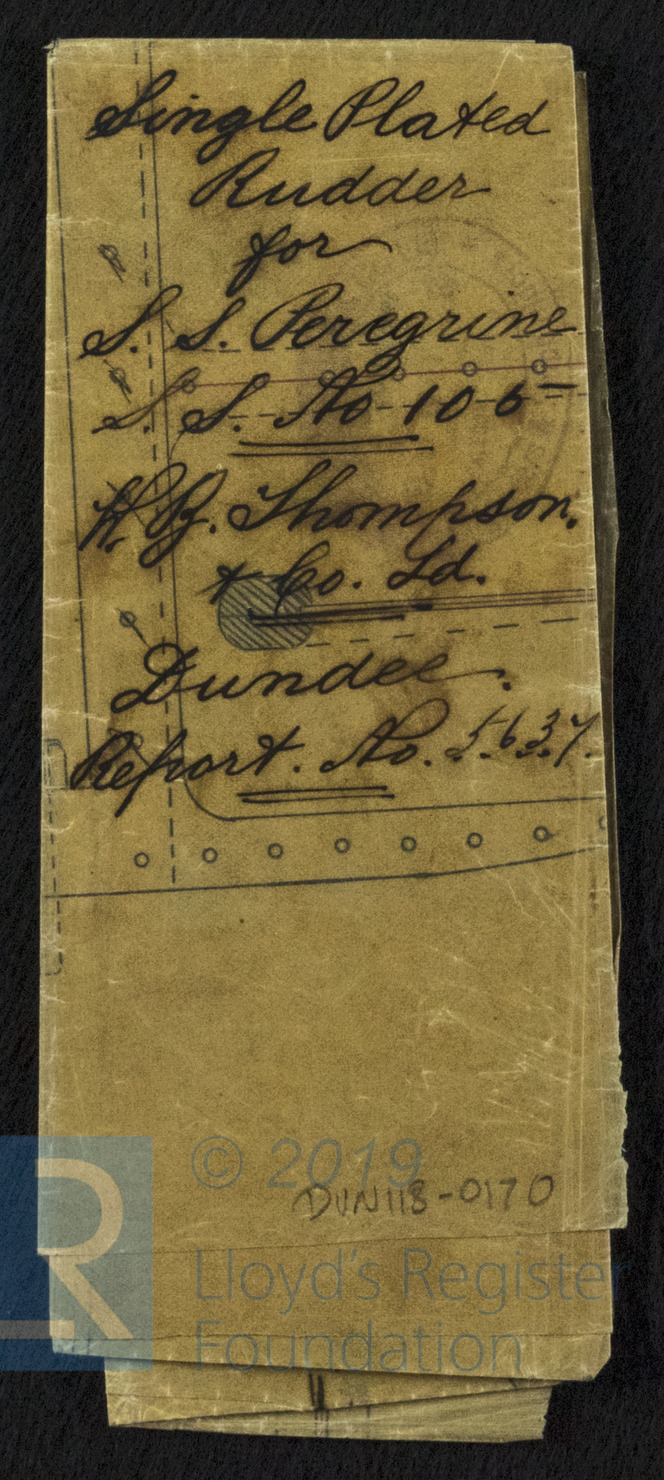 Single Plated
Rudder
for
S. S. Peregrine
S. S. No 106
W. B. Thompson.
& Co. Ld.
Dundee.
Report. No. 5637.
© 2019
DUN118-0170
Lloyd's Register
Foundation